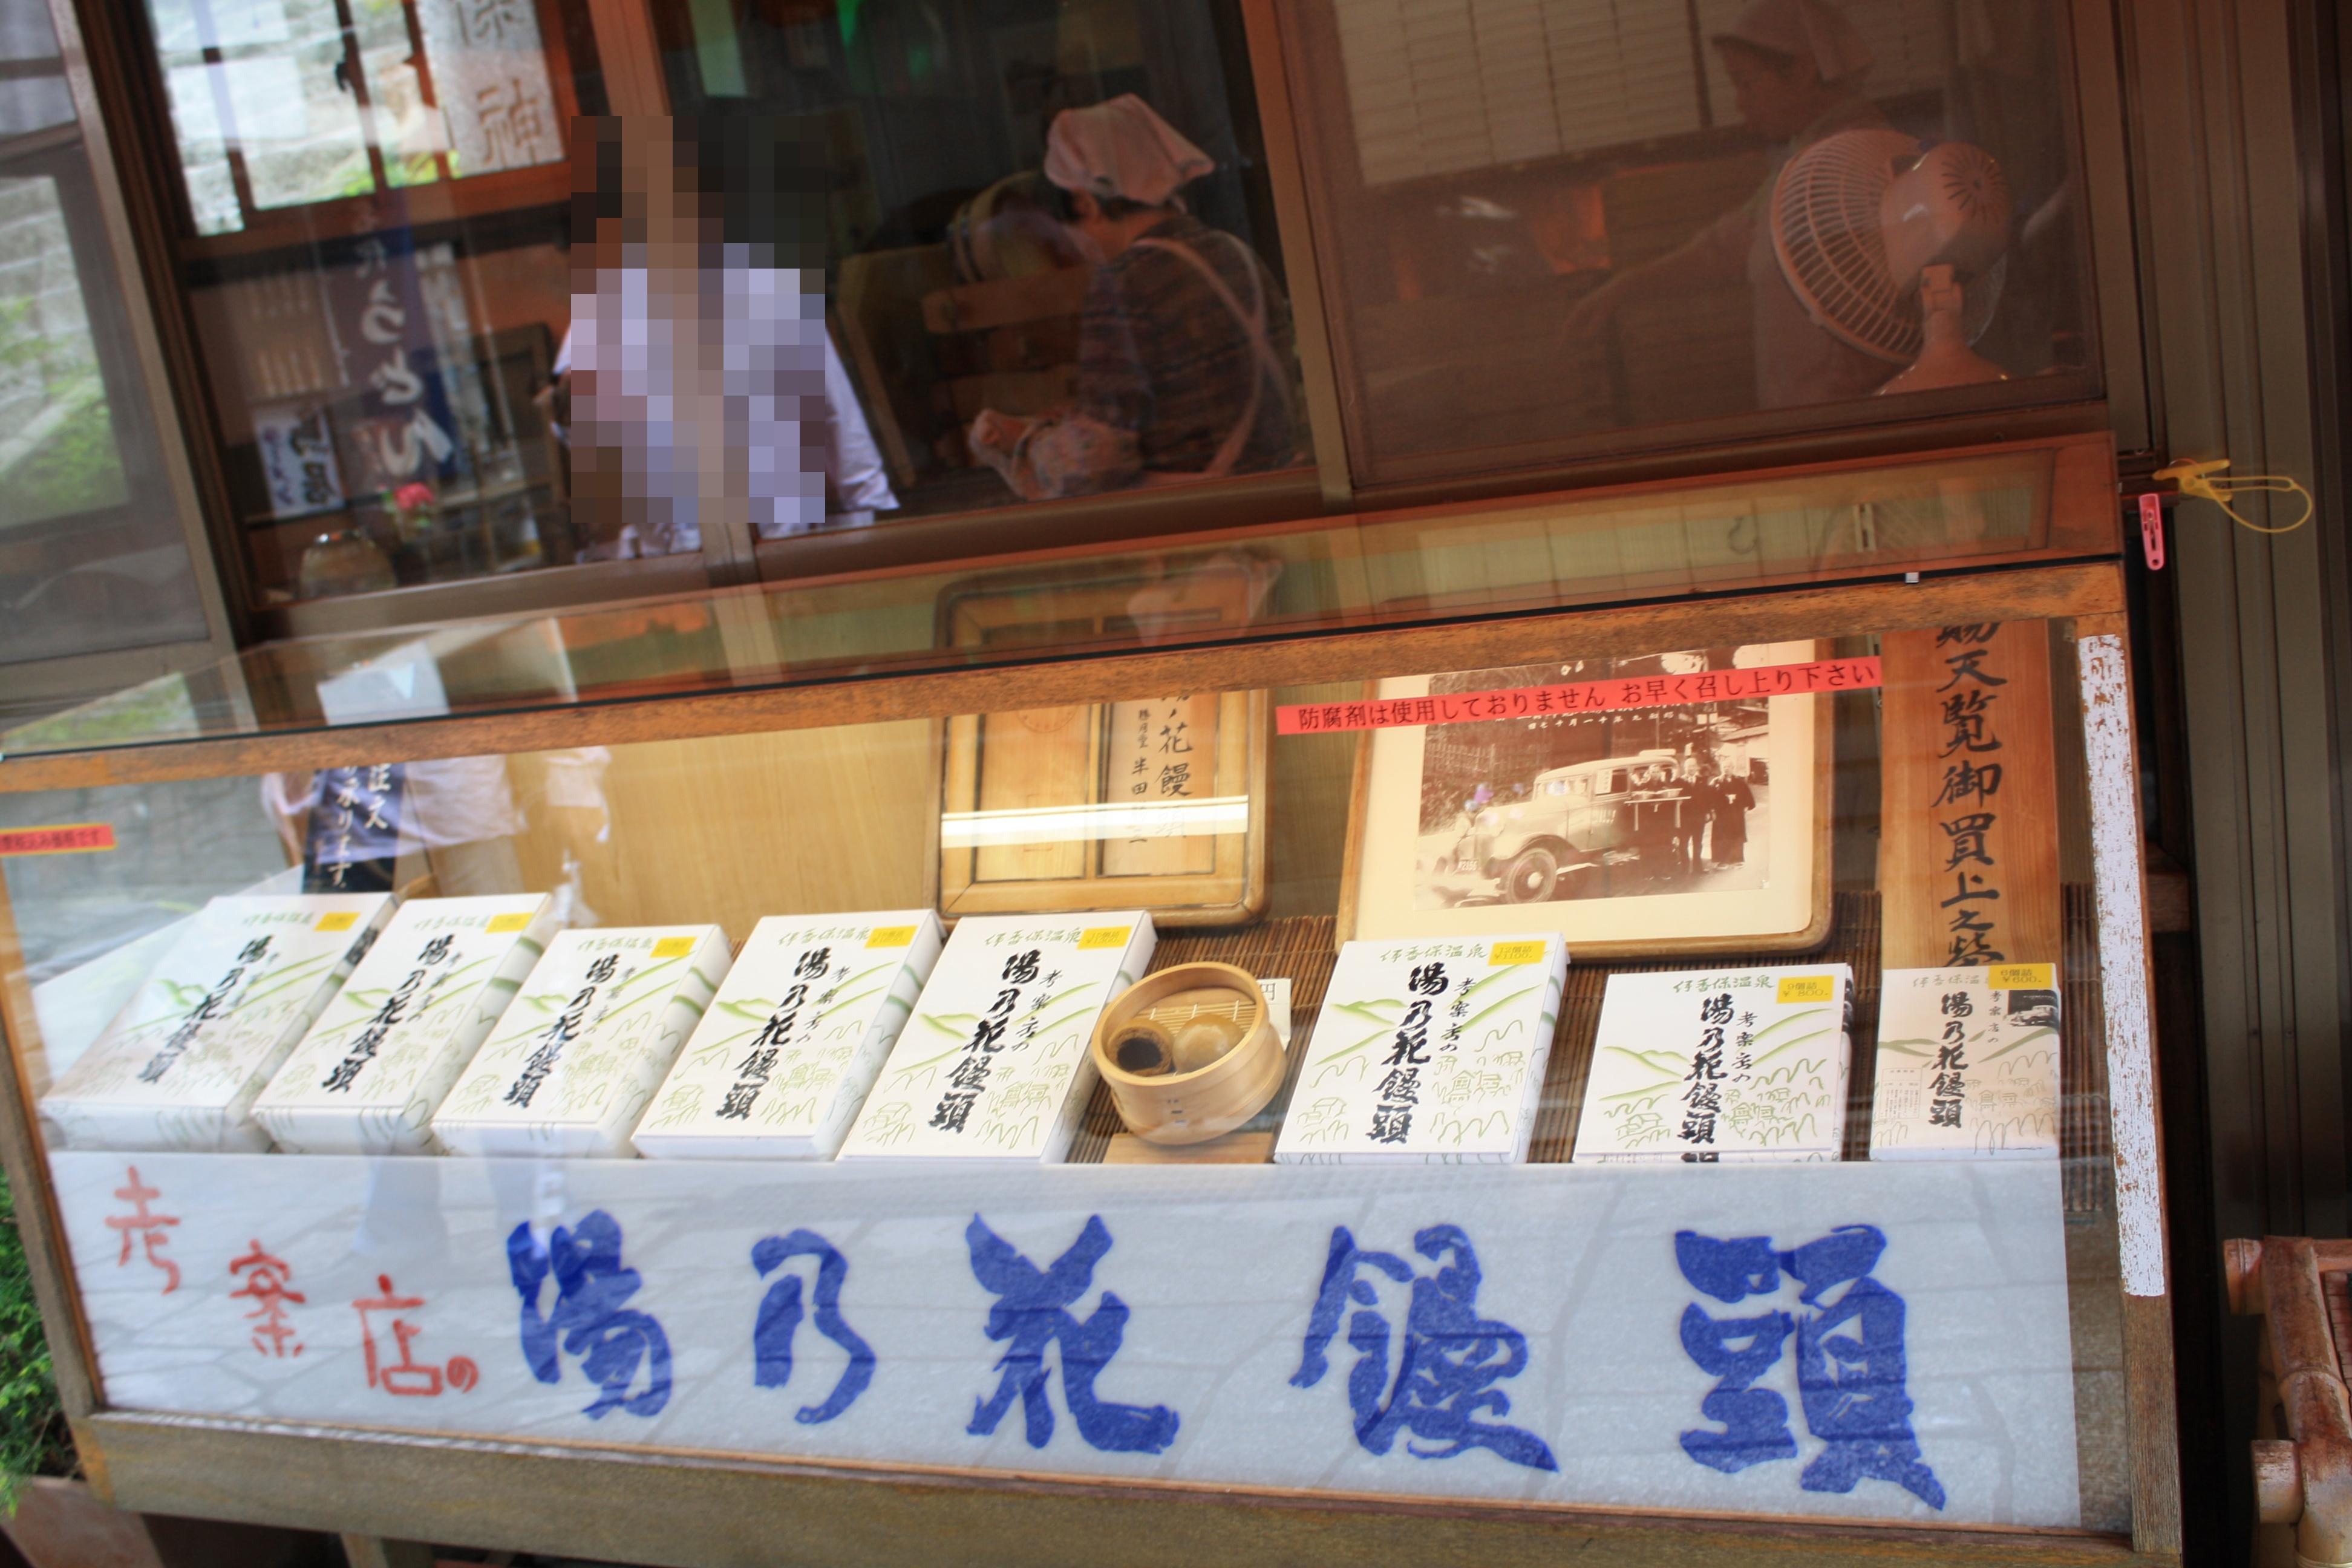 保
神
うどん
防腐剤は使用しておりません お早く召し上り下さい
天覧御買上之
ノ花饅頭
半田
注文
承ります。
税込み価格です
伊香保温泉
湯乃花饅頭
伊香保温泉
湯乃花饅頭
伊香保温泉
湯乃花饅頭
伊香保温泉
考案店の
湯乃花饅頭
伊香保温泉
考案店の
湯乃花饅頭
円
伊香保温泉
12個詰
¥1100.
考案店の
湯乃花饅頭
伊香保温泉
9個詰
¥ 800.
考案店の
湯乃花饅頭
伊香保温
6個詰
¥600.
考案店の
湯乃花饅頭
考案店の 湯乃花饅頭